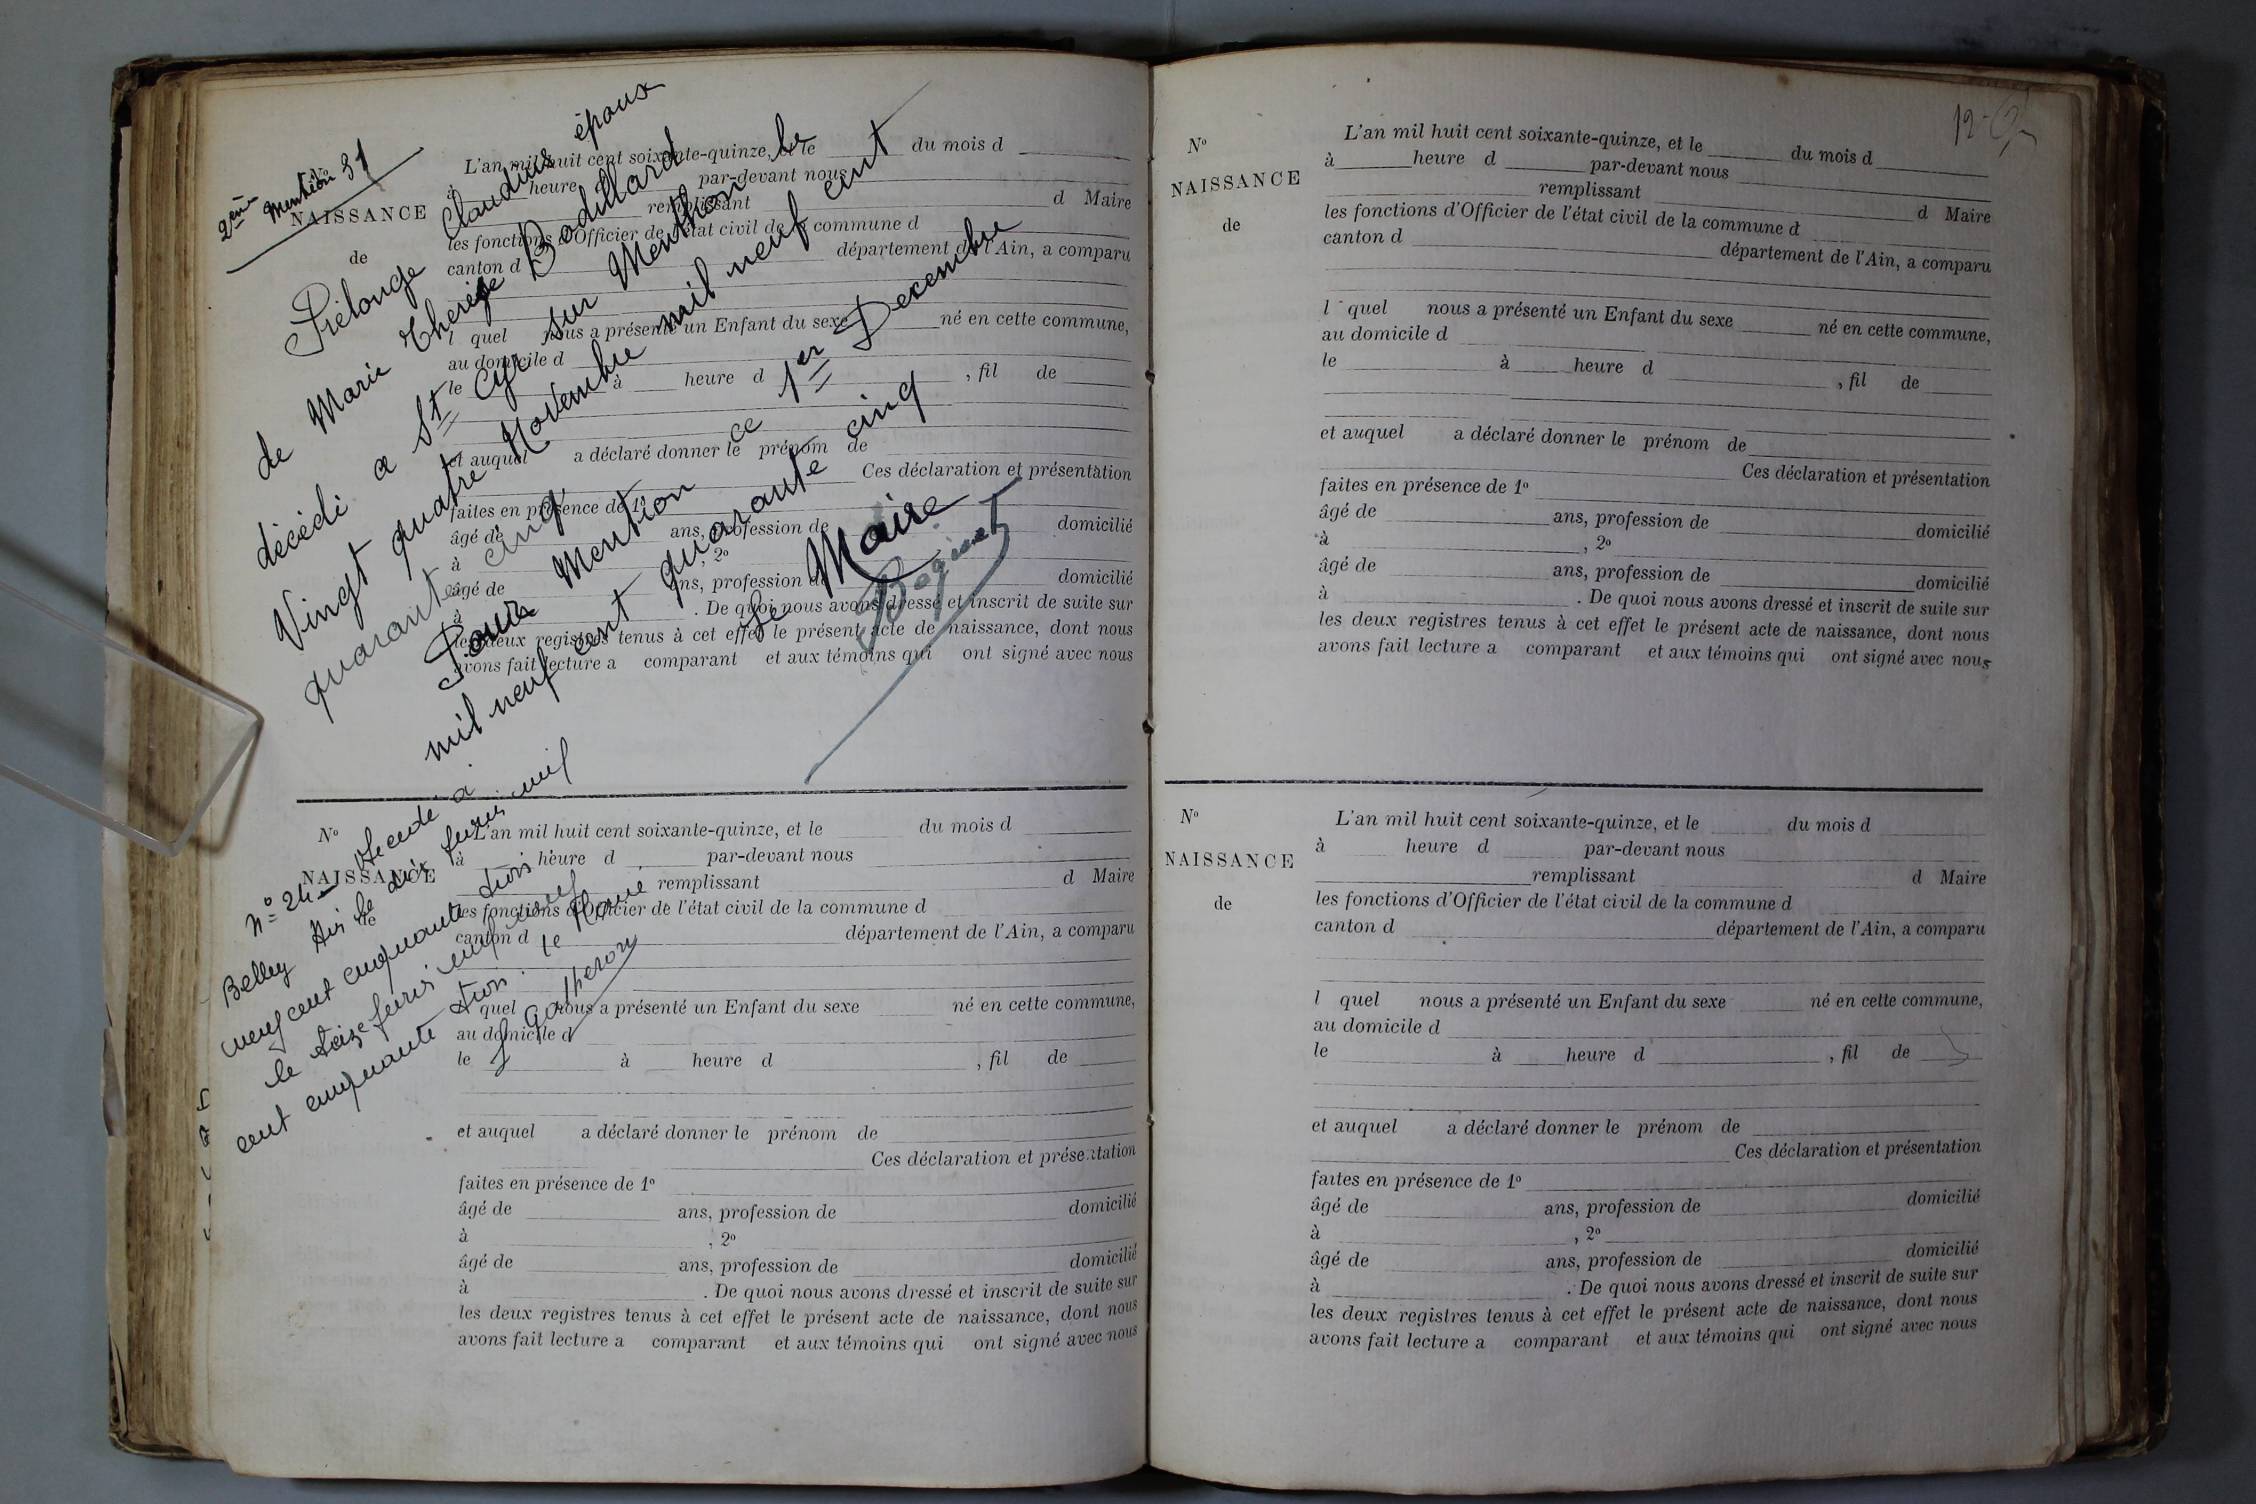 2ème Mention 31
Prélonge Claudius époux
de Marie Thérèse Bodillard
décédé a St Cyr sur Menthon le
Vingt quatre Novembre mil neuf cent
quarante cinq
Pour Mention ce 1er Decembre
mil neuf cent quarante cinq
Le Maire
NAISSANCE
de
L'an mil huit cent soixante-quinze, et le du mois d
à heure d par-devant nous
remplissant d Maire
les fonctions d'Officier de l'état civil de la commune d
canton d département de l'Ain, a comparu
l quel nous a présenté un Enfant du sexe né en cette commune,
au domicile d
le à heure d , fil de
et auquel a déclaré donner le prénom de
Ces déclaration et présentation
faites en présence de 1º
âgé de ans, profession de domicilié
à , 2º
âgé de ans, profession de domicilié
à . De quoi nous avons dressé et inscrit de suite sur
les deux registres tenus à cet effet le présent acte de naissance, dont nous
avons fait lecture a comparant et aux témoins qui ont signé avec nous
nº 24 Décédé à
Belley Ain le dix février mil
neuf cent cinquante trois
le treize février mil neuf
cent cinquante trois. le Maire
Nº
NAISSANCE
de
L'an mil huit cent soixante-quinze, et le du mois d
à heure d par-devant nous
remplissant d Maire
les fonctions d'Officier de l'état civil de la commune d
canton d département de l'Ain, a comparu
l quel nous a présenté un Enfant du sexe né en cette commune,
au domicile d
le à heure d , fil de
et auquel a déclaré donner le prénom de
Ces déclaration et présentation
faites en présence de 1º
âgé de ans, profession de domicilié
à , 2º
âgé de ans, profession de domicilié
à . De quoi nous avons dressé et inscrit de suite sur
les deux registres tenus à cet effet le présent acte de naissance, dont nous
avons fait lecture a comparant et aux témoins qui ont signé avec nous
Nº
NAISSANCE
de
L'an mil huit cent soixante-quinze, et le du mois d
à heure d par-devant nous
remplissant d Maire
les fonctions d'Officier de l'état civil de la commune d
canton d département de l'Ain, a comparu
l quel nous a présenté un Enfant du sexe né en cette commune,
au domicile d
le à heure d , fil de
et auquel a déclaré donner le prénom de
Ces déclaration et présentation
faites en présence de 1º
âgé de ans, profession de domicilié
à , 2º
âgé de ans, profession de domicilié
à . De quoi nous avons dressé et inscrit de suite sur
les deux registres tenus à cet effet le présent acte de naissance, dont nous
avons fait lecture a comparant et aux témoins qui ont signé avec nous
Nº
NAISSANCE
de
L'an mil huit cent soixante-quinze, et le du mois d
à heure d par-devant nous
remplissant d Maire
les fonctions d'Officier de l'état civil de la commune d
canton d département de l'Ain, a comparu
l quel nous a présenté un Enfant du sexe né en cette commune,
au domicile d
le à heure d , fil de
et auquel a déclaré donner le prénom de
Ces déclaration et présentation
faites en présence de 1º
âgé de ans, profession de domicilié
à , 2º
âgé de ans, profession de domicilié
à . De quoi nous avons dressé et inscrit de suite sur
les deux registres tenus à cet effet le présent acte de naissance, dont nous
avons fait lecture a comparant et aux témoins qui ont signé avec nous